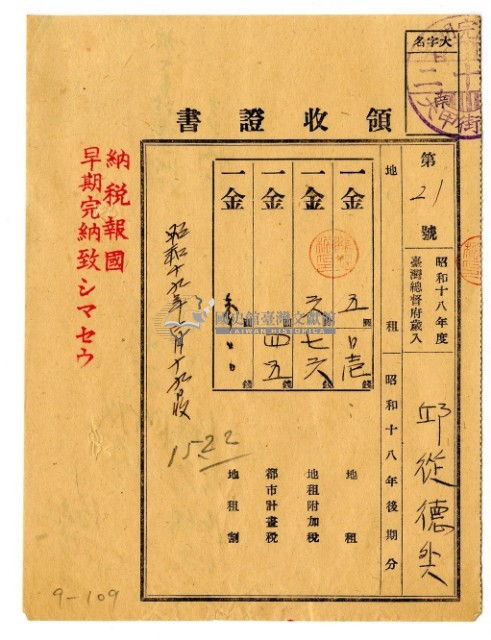 大字名
領收證書
第21號
昭和十八年度
臺灣總督府歲入
邱從德
地租
昭和十八年後期分
一金 五 圓 〇壱 錢 地租
一金 六 圓 七六 錢 地租附加税
一金 圓 四五 錢 都市計畫税
一金 圓 錢 地租割
昭和十九年 月十九日
1522
納税報國
早期完納致シマセウ
國史館臺灣文獻館
TAIWAN HISTORICA
9-109